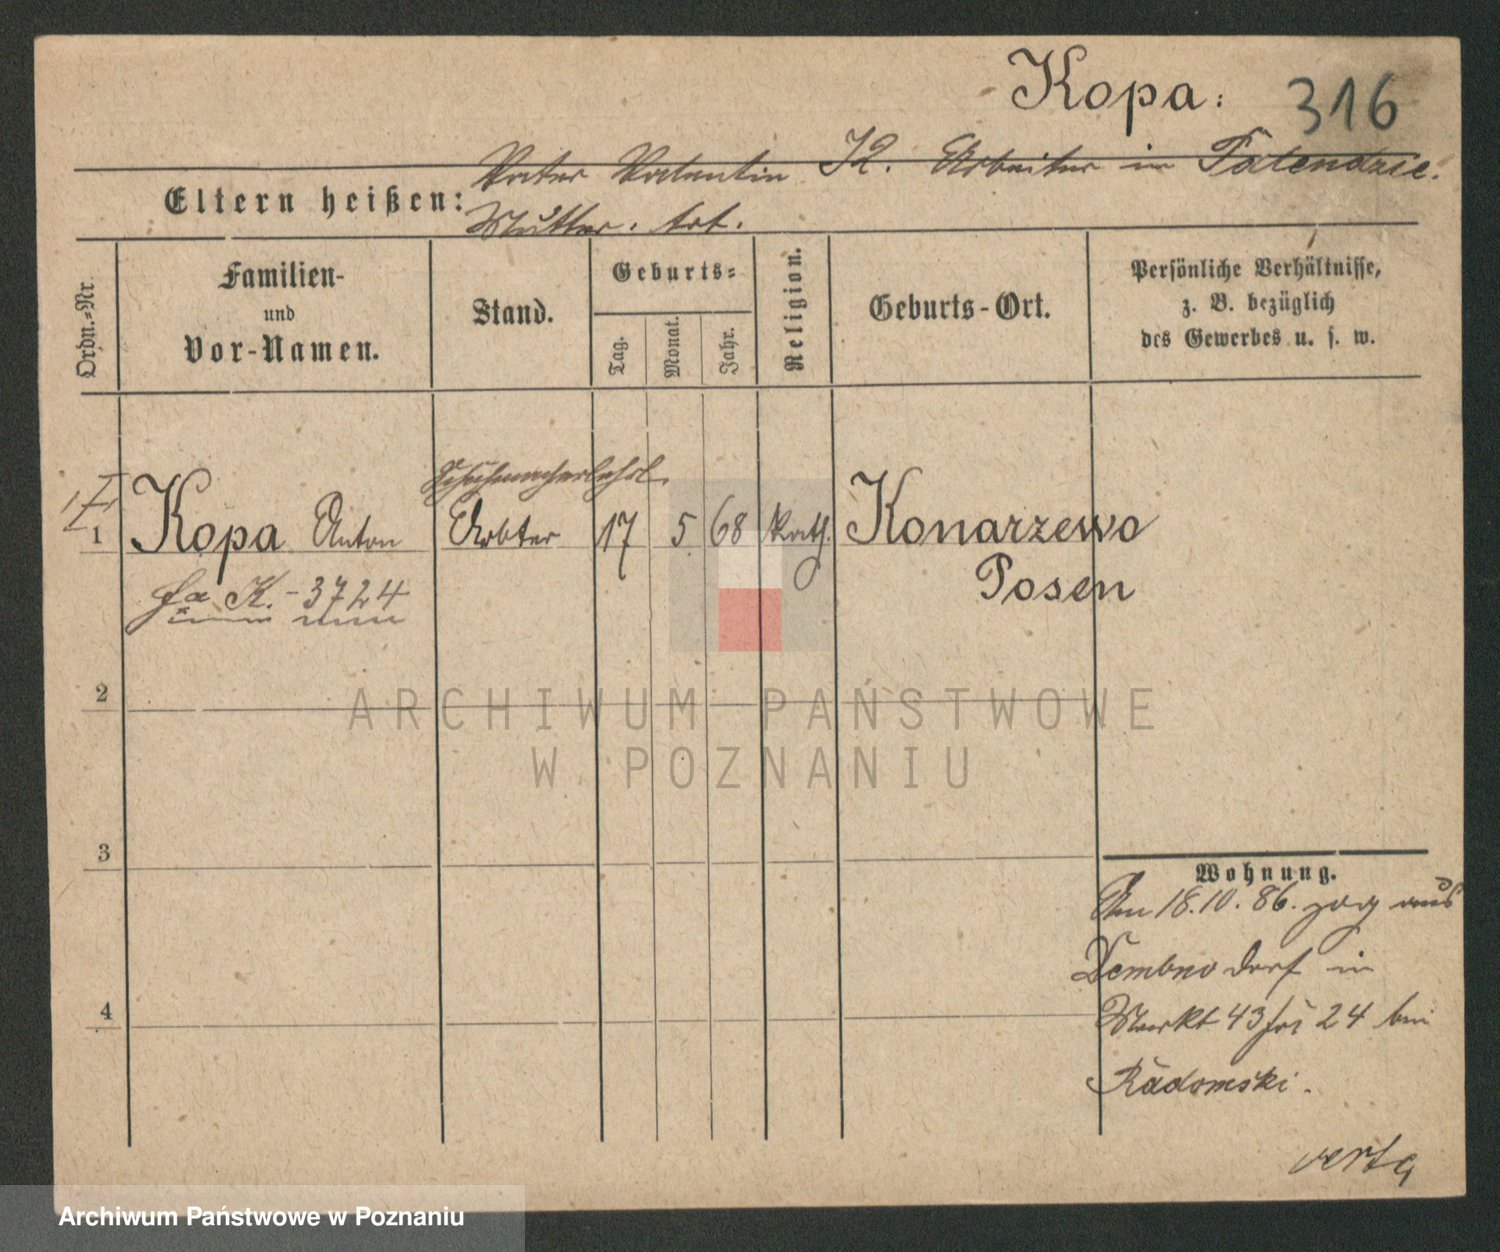 Kopa: 316
Vater Valentin K. Arbeiter in Palendzie.
Eltern heißen:
Mutter: tot.
Ordn.-Nr.
Familien-
und
Vor-Namen.
Stand.
Geburts-
Tag.
Monat.
Jahr.
Religion.
Geburts-Ort.
Persönliche Verhältnisse,
z. B. bezüglich
des Gewerbes u. s. w.
Schuhmacherlehrl.
1 Kopa Anton Arbter 17 5 68 kath. Konarzewo
Posen
K. - 3724
2
3
4
Wohnung.
Am 18.10.86. zog aus
Dembno dorf in
Markt 43 24 bei
Radomski.
verte
ARCHIWUM PAŃSTWOWE
W POZNANIU
Archiwum Państwowe w Poznaniu